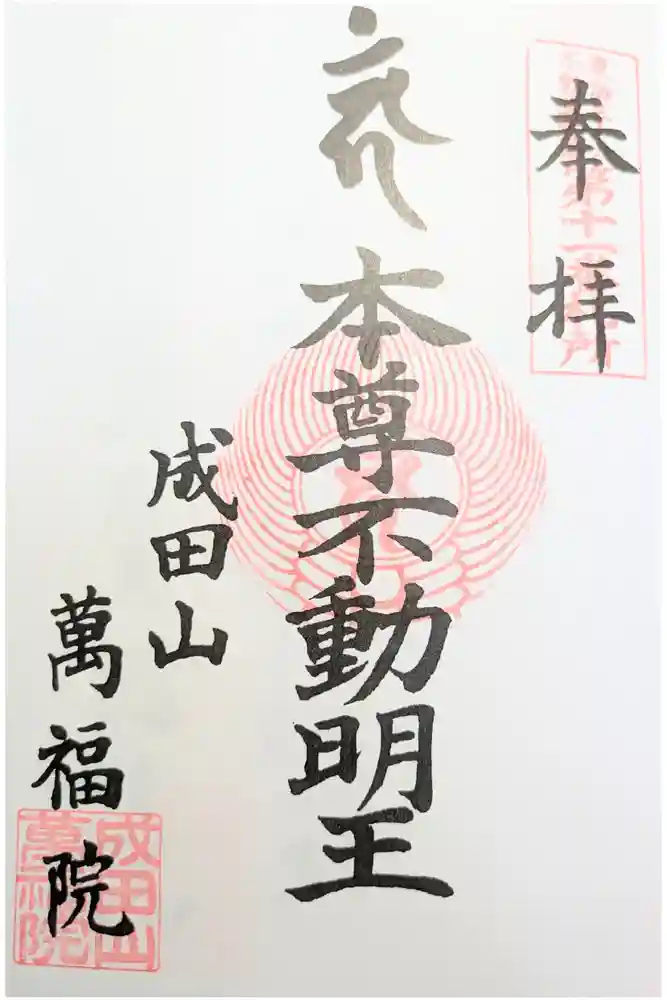 奉拝
本尊不動明王
成田山
萬福院
成田山
萬福院